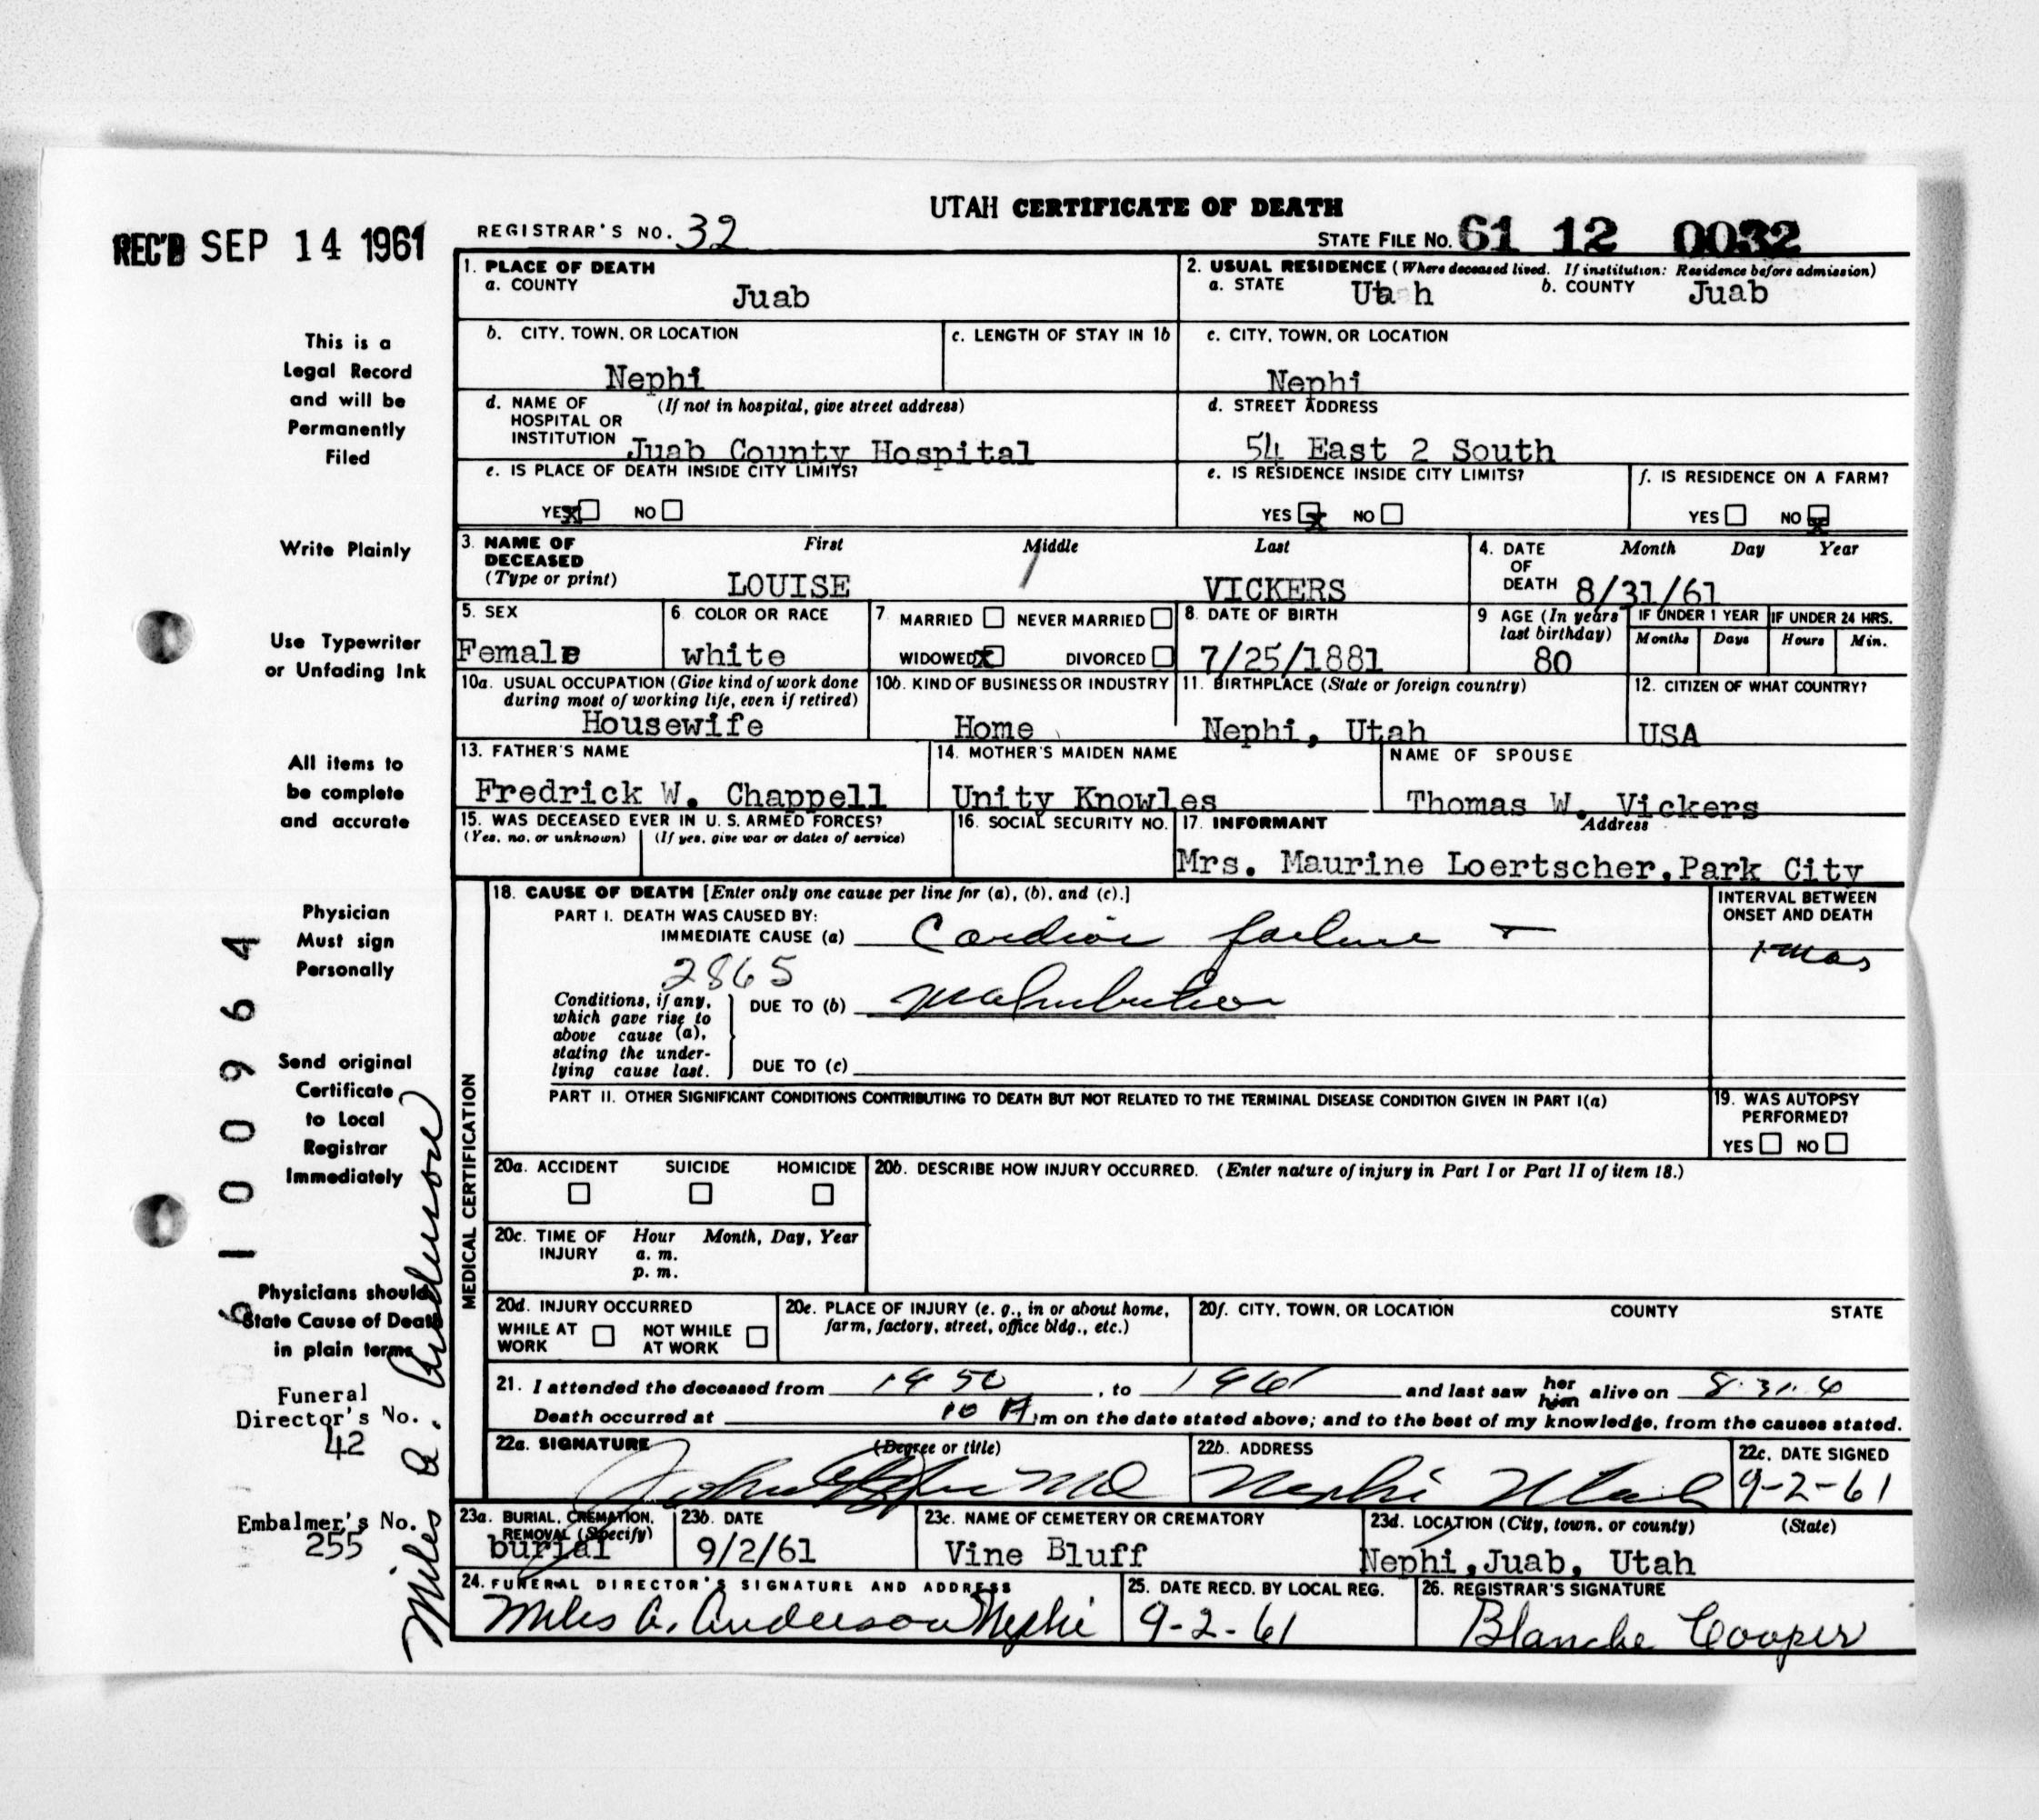 UTAH CERTIFICATE OF DEATH
REC'D SEP 14 1961
REGISTRAR'S NO. 32
STATE FILE NO. 61 12 0032
1. PLACE OF DEATH
a. COUNTY
Juab
2. USUAL RESIDENCE (Where deceased lived. If institution: Residence before admission)
a. STATE Utah b. COUNTY Juab
b. CITY, TOWN, OR LOCATION
Nephi
c. LENGTH OF STAY IN 1b
c. CITY, TOWN, OR LOCATION
Nephi
d. NAME OF HOSPITAL OR INSTITUTION (If not in hospital, give street address)
Juab County Hospital
d. STREET ADDRESS
54 East 2 South
e. IS PLACE OF DEATH INSIDE CITY LIMITS?
YES x NO
e. IS RESIDENCE INSIDE CITY LIMITS?
YES x NO
f. IS RESIDENCE ON A FARM?
YES NO x
3. NAME OF DECEASED (Type or print)
First Middle Last
LOUISE / VICKERS
4. DATE OF DEATH Month Day Year
8/31/61
5. SEX
Female
6. COLOR OR RACE
white
7. MARRIED NEVER MARRIED
WIDOWED x DIVORCED
8. DATE OF BIRTH
7/25/1881
9 AGE (In years last birthday)
80
IF UNDER 1 YEAR
Months Days
IF UNDER 24 HRS.
Hours Min.
10a. USUAL OCCUPATION (Give kind of work done during most of working life, even if retired)
Housewife
10b. KIND OF BUSINESS OR INDUSTRY
Home
11. BIRTHPLACE (State or foreign country)
Nephi, Utah
12. CITIZEN OF WHAT COUNTRY?
USA
13. FATHER'S NAME
Fredrick W. Chappell
14. MOTHER'S MAIDEN NAME
Unity Knowles
NAME OF SPOUSE
Thomas W. Vickers
15. WAS DECEASED EVER IN U.S. ARMED FORCES?
(Yes, no, or unknown) (If yes, give war or dates of service)
16. SOCIAL SECURITY NO.
17. INFORMANT Address
Mrs. Maurine Loertscher, Park City
MEDICAL CERTIFICATION
18. CAUSE OF DEATH [Enter only one cause per line for (a), (b), and (c).]
PART I. DEATH WAS CAUSED BY:
IMMEDIATE CAUSE (a) Cardiac failure
INTERVAL BETWEEN ONSET AND DEATH
mos
2865
Conditions, if any, which gave rise to above cause (a), stating the underlying cause last.
DUE TO (b) Malnutrition
DUE TO (c)
PART II. OTHER SIGNIFICANT CONDITIONS CONTRIBUTING TO DEATH BUT NOT RELATED TO THE TERMINAL DISEASE CONDITION GIVEN IN PART I(a)
19. WAS AUTOPSY PERFORMED?
YES NO
20a. ACCIDENT SUICIDE HOMICIDE
20b. DESCRIBE HOW INJURY OCCURRED. (Enter nature of injury in Part I or Part II of item 18.)
20c. TIME OF INJURY Hour Month, Day, Year
a. m.
p. m.
20d. INJURY OCCURRED
WHILE AT WORK NOT WHILE AT WORK
20e. PLACE OF INJURY (e. g., in or about home, farm, factory, street, office bldg., etc.)
20f. CITY, TOWN, OR LOCATION COUNTY STATE
21. I attended the deceased from 1950, to 1961 and last saw her him alive on 8.31.6
Death occurred at 10 A m on the date stated above; and to the best of my knowledge, from the causes stated.
22a. SIGNATURE (Degree or title)
John MD
22b. ADDRESS
Nephi Utah
22c. DATE SIGNED
9-2-61
23a. BURIAL, CREMATION, REMOVAL (Specify)
burial
23b. DATE
9/2/61
23c. NAME OF CEMETERY OR CREMATORY
Vine Bluff
23d. LOCATION (City, town, or county) (State)
Nephi, Juab, Utah
24. FUNERAL DIRECTOR'S SIGNATURE AND ADDRESS
Miles A. Anderson Nephi
25. DATE RECD. BY LOCAL REG.
9-2-61
26. REGISTRAR'S SIGNATURE
Blanche Cooper
This is a
Legal Record
and will be
Permanently
Filed
Write Plainly
Use Typewriter
or Unfading Ink
All items to
be complete
and accurate
Physician
Must sign
Personally
Send original
Certificate
to Local
Registrar
Immediately
Physicians should
State Cause of Death
in plain terms
Funeral
Director's No.
42
Embalmer's No.
255
Miles A. Anderson
6100964